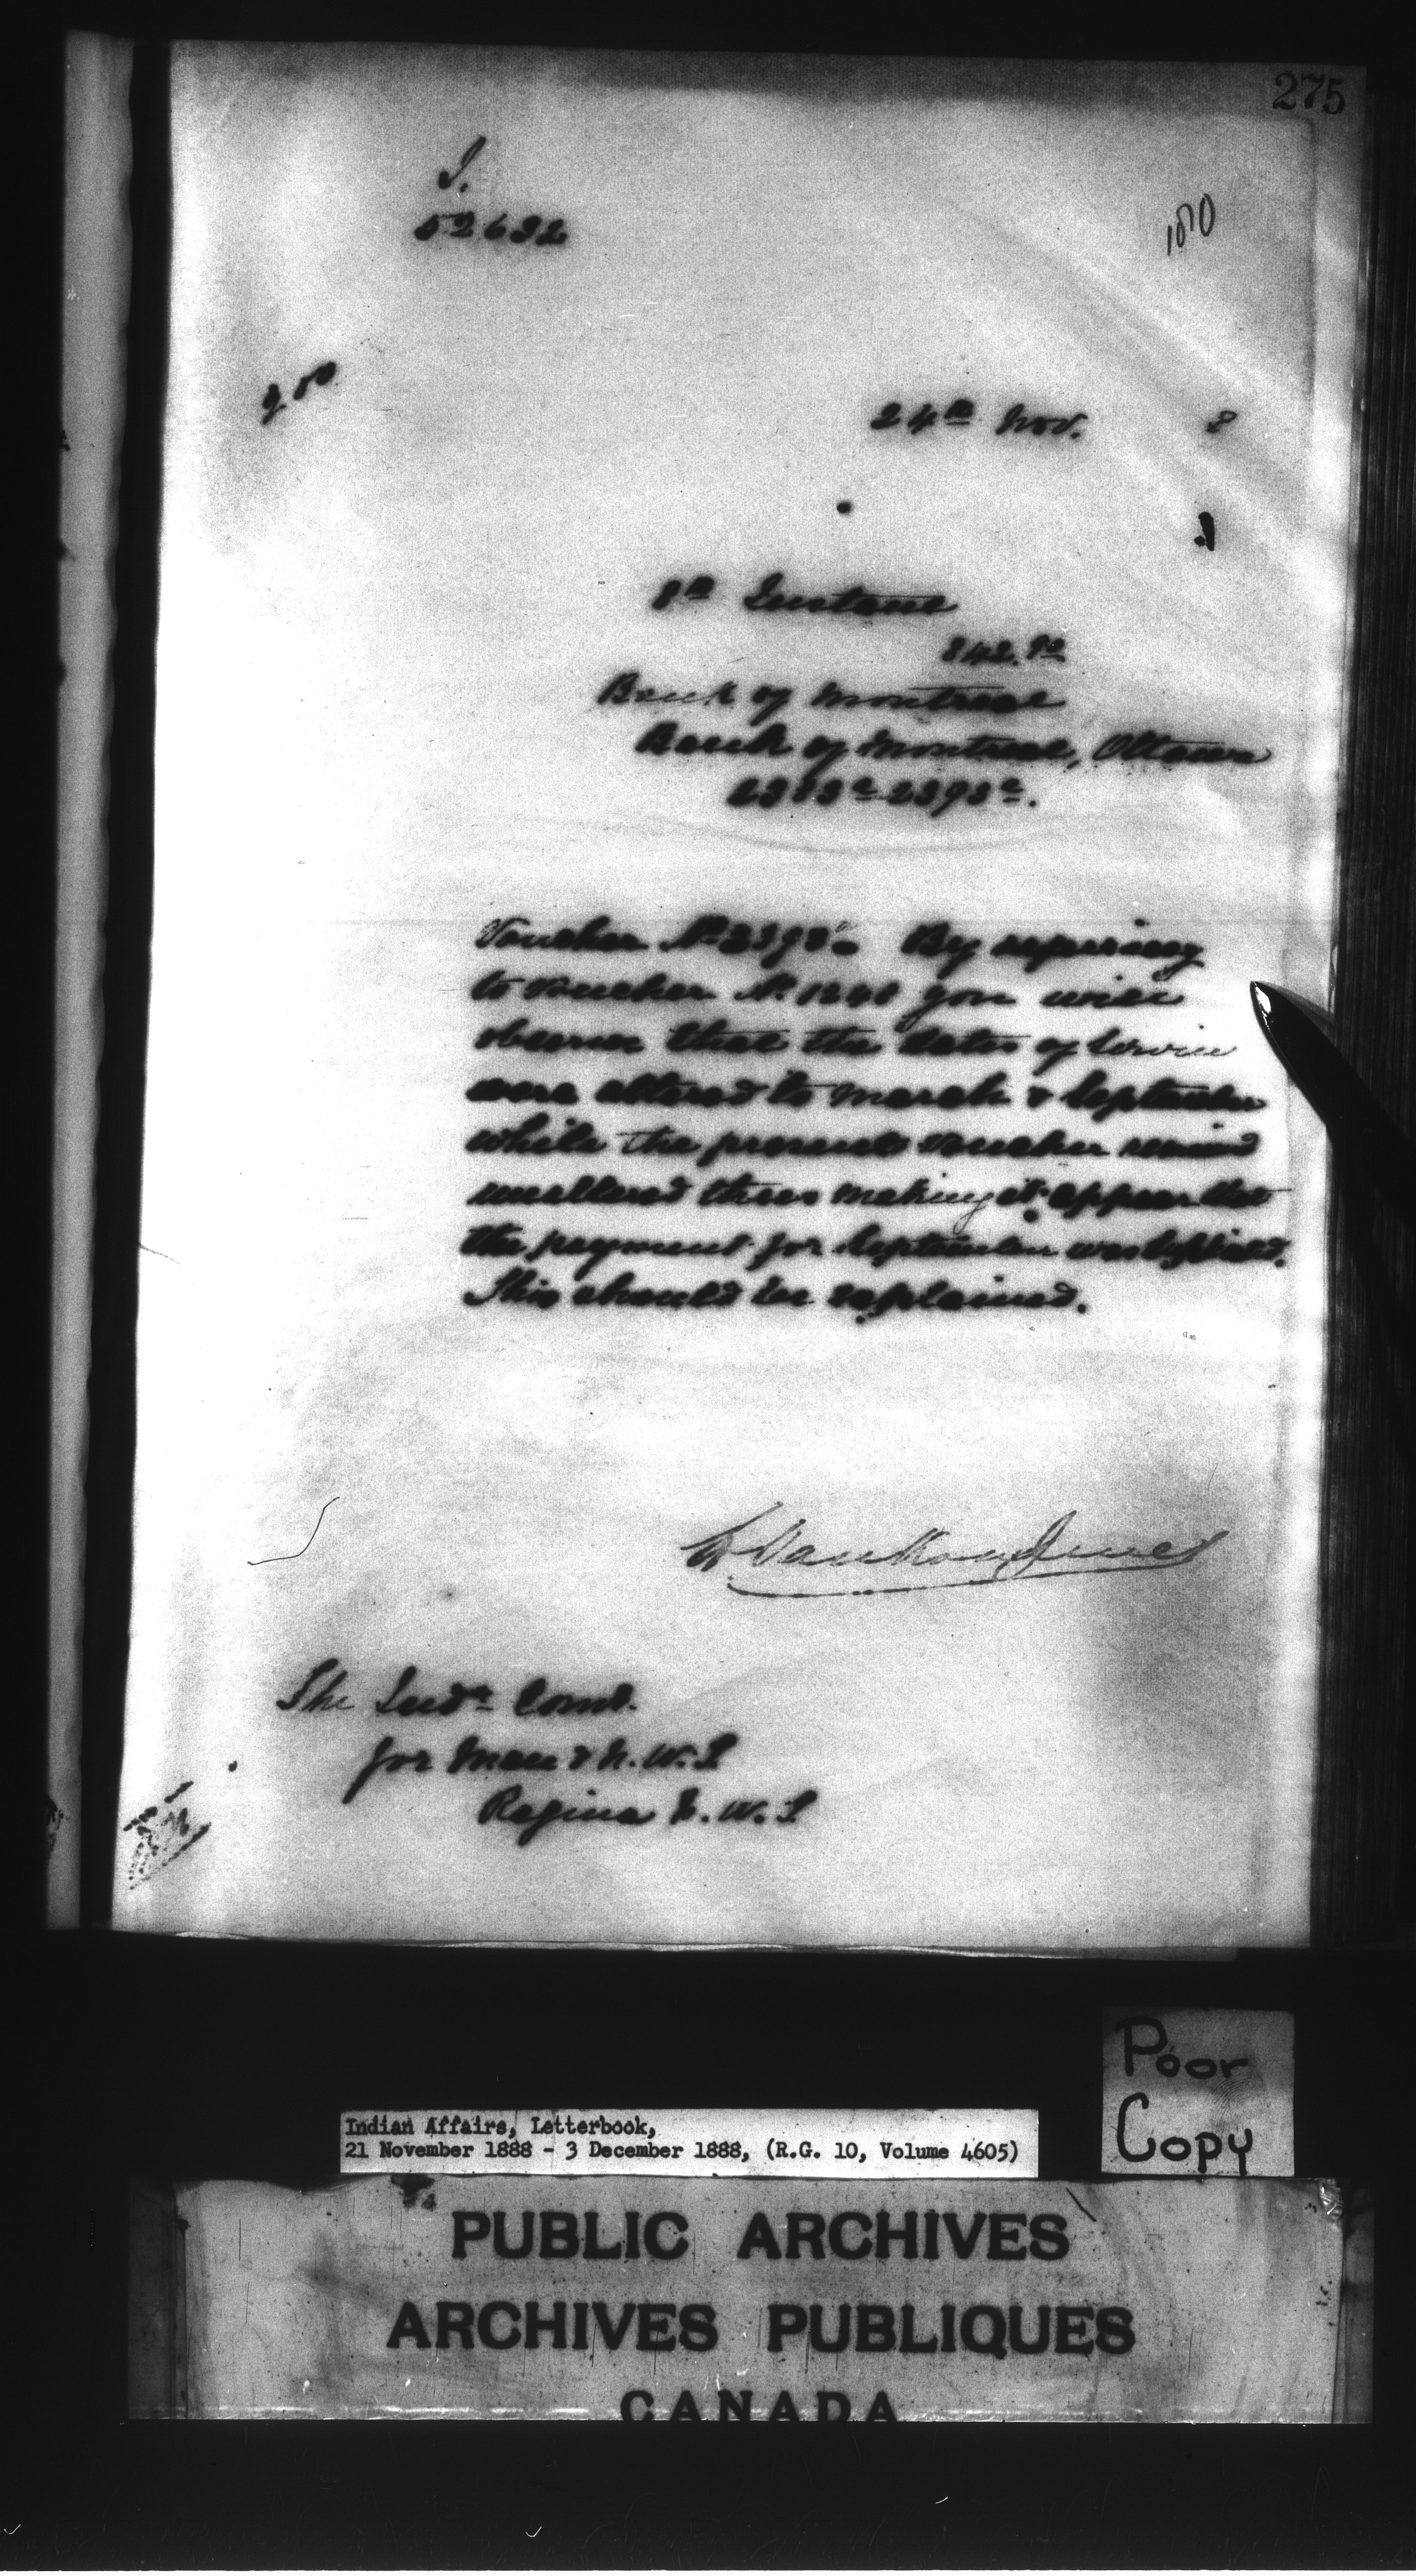 275
I.
52632
24th Nov. 8
8th Instant
842.90
Bank of Montreal
Bank of Montreal, Ottawa
Voucher No 2393c. By referring
to voucher No 1248 you will
observe that the dates of service
were altered to March & September
while the present voucher remained
unaltered thus making it appear that
the payment for September was
This should be explained.
L. Vankoughnet
The Indn Comr.
for Man & N.W.T.
Regina N.W.T.
Poor
Copy
Indian Affairs, Letterbook,
21 November 1888 - 3 December 1888, (R.G. 10, Volume 4605)
PUBLIC ARCHIVES
ARCHIVES PUBLIQUES
CANADA